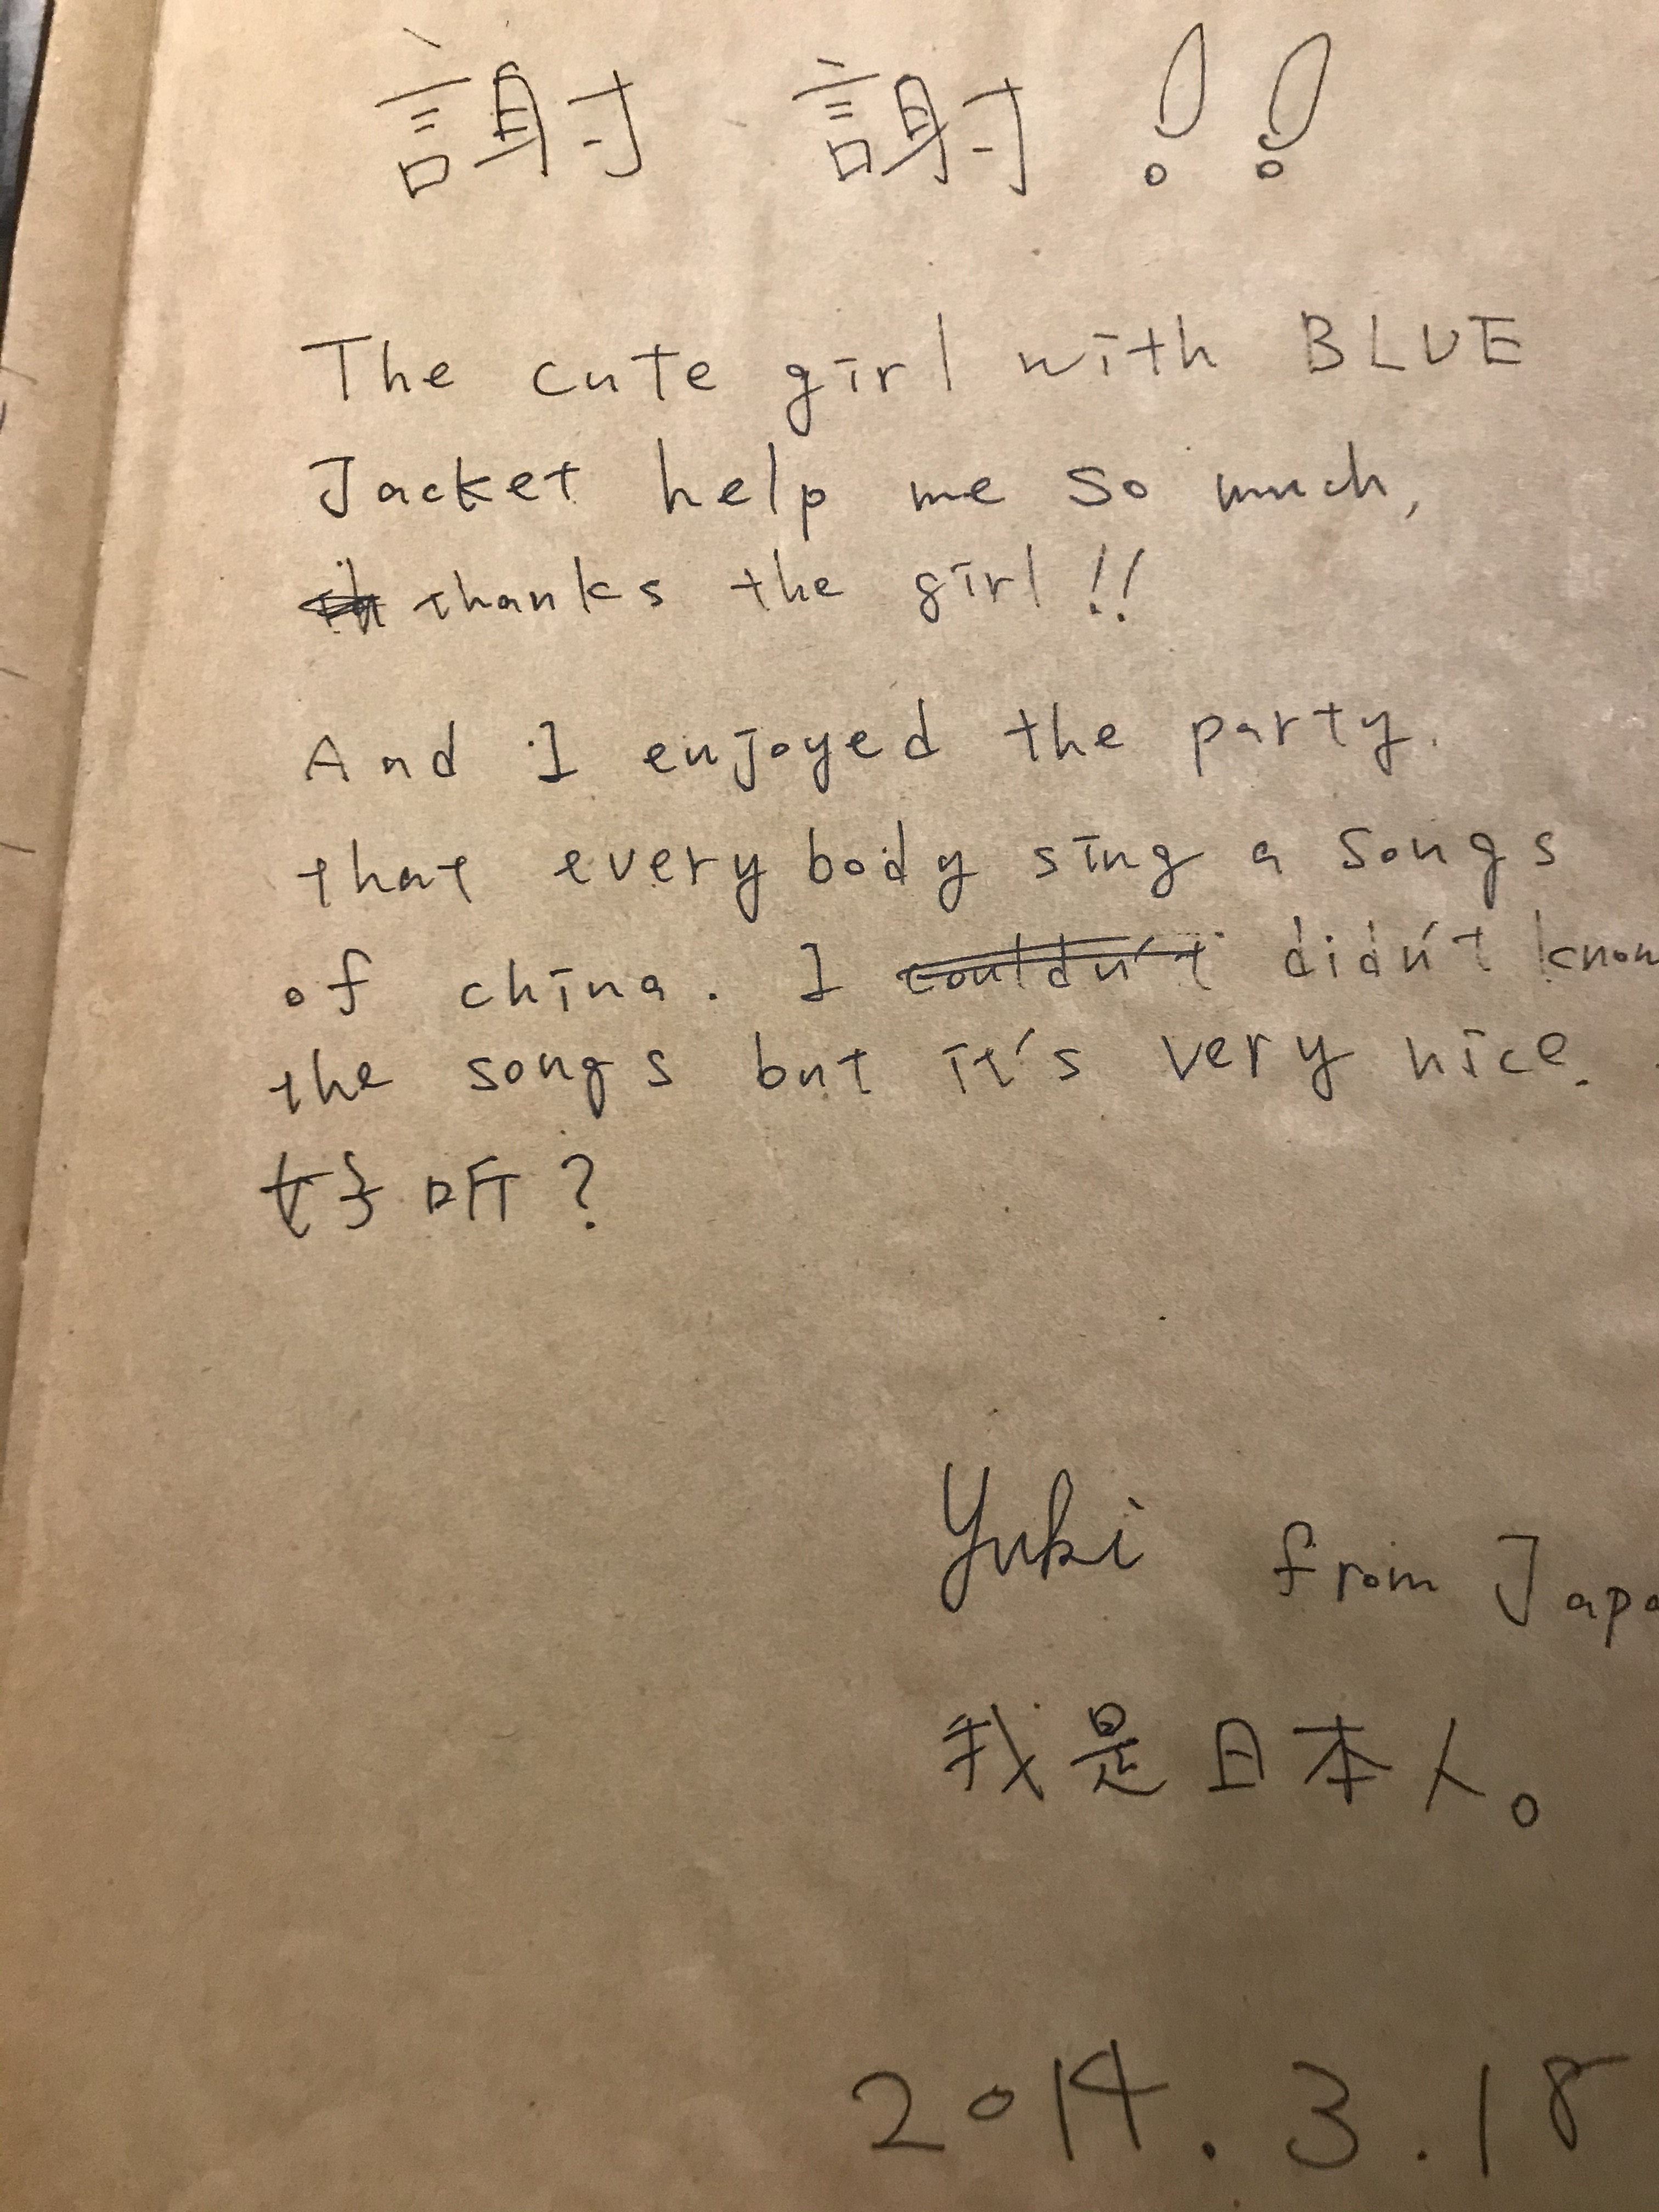 謝 謝 !!
The cute girl with BLUE
Jacket help me so much,
thanks the girl!!
And I enjoyed the party.
that every body sing a songs
of china. I couldn't didn't know
the songs but it's very nice.
好听?
Yuki from Japa
我是日本人。
2014.3.18